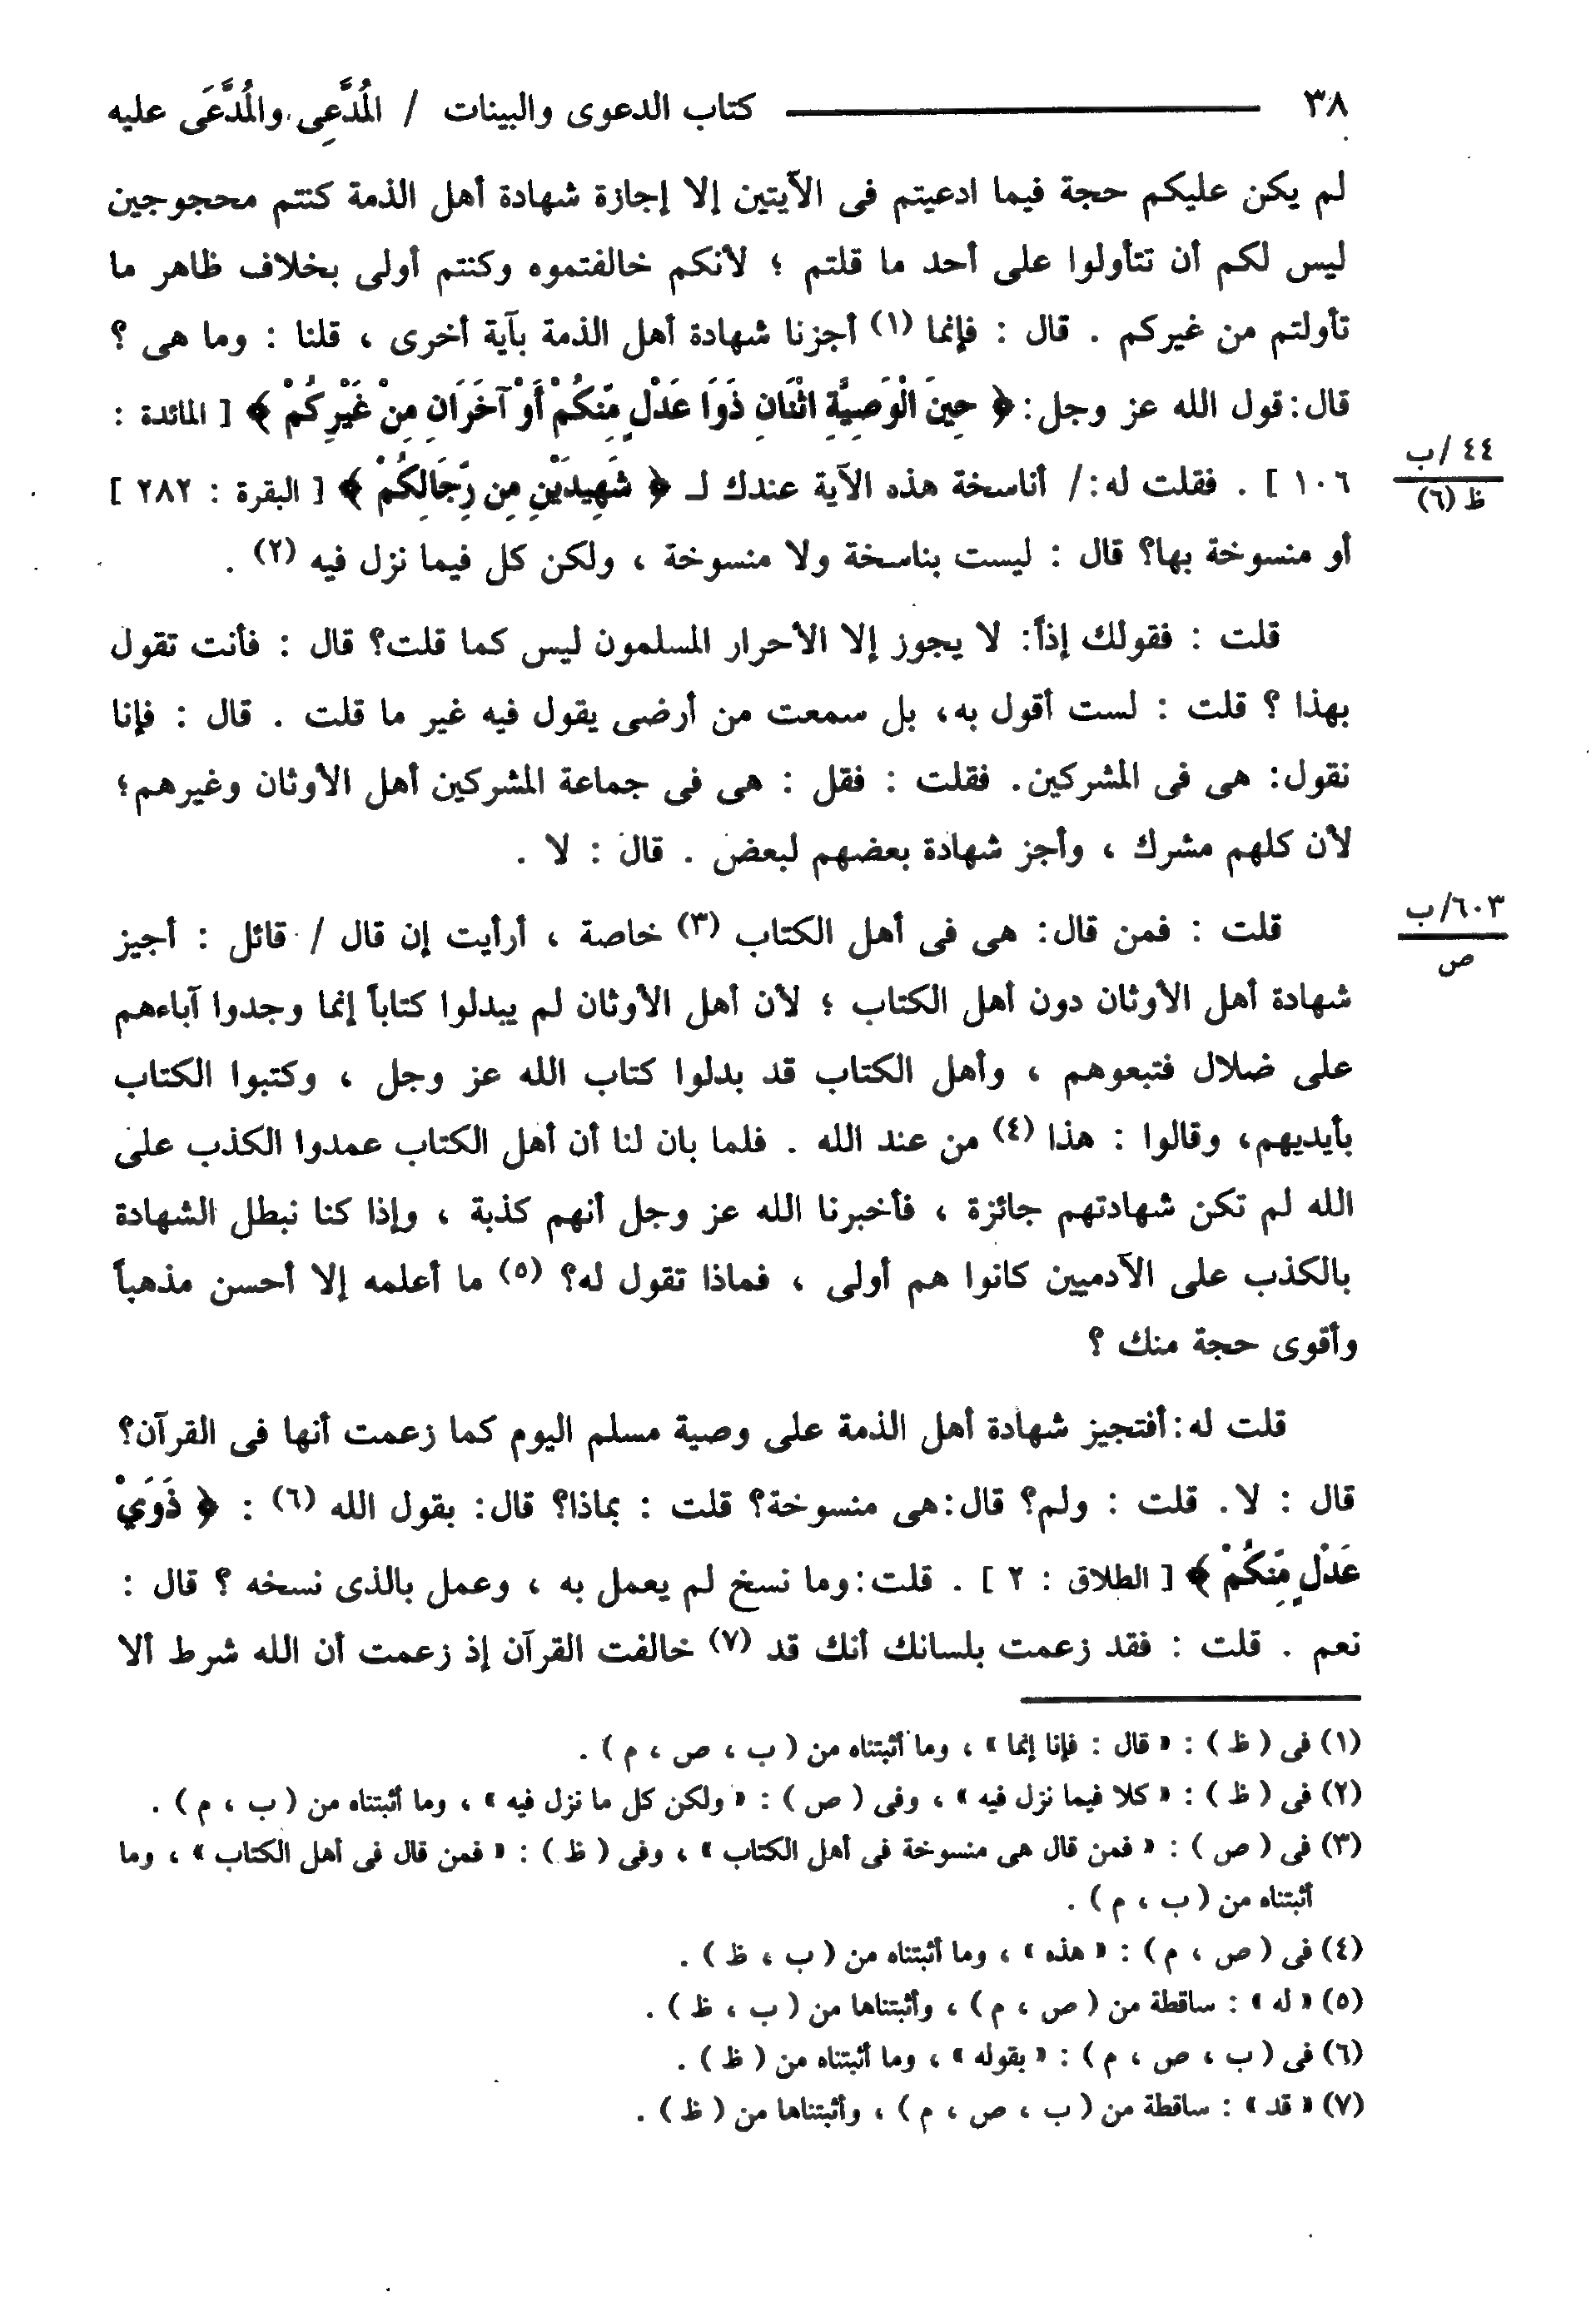 ٣٨ كتاب الدعوى والبينات / المُدَّعِى والمُدَّعَى عليه
لم يكن عليكم حجة فيما ادعيتم فى الآيتين إلا إجازة شهادة أهل الذمة كنتم محجوجين
ليس لكم أن تتأولوا على أحد ما قلتم ؛ لأنكم خالفتموه وكنتم أولى بخلاف ظاهر ما
تأولتم من غيركم . قال : فإنما (١) أجزنا شهادة أهل الذمة بآية أخرى ، قلنا : وما هى ؟
قال: قول الله عز وجل: ﴿ حِينَ الْوَصِيَّةِ اثْنَانِ ذَوَا عَدْلٍ مِّنكُمْ أَوْ آخَرَانِ مِنْ غَيْرِكُمْ ﴾ [ المائدة :
١٠٦ ] . فقلت له: / أناسخة هذه الآية عندك لـ ﴿ شَهِيدَيْنِ مِن رِّجَالِكُمْ ﴾ [ البقرة : ٢٨٢ ]
٤٤ /ب
ظ (٦)
أو منسوخة بها؟ قال : ليست بناسخة ولا منسوخة ، ولكن كل فيما نزل فيه (٢) .
قلت : فقولك إذاً: لا يجوز إلا الأحرار المسلمون ليس كما قلت؟ قال : فأنت تقول
بهذا ؟ قلت : لست أقول به، بل سمعت من أرضى يقول فيه غير ما قلت . قال : فإنا
نقول: هى فى المشركين. فقلت : فقل : هى فى جماعة المشركين أهل الأوثان وغيرهم؛
لأن كلهم مشرك ، وأجز شهادة بعضهم لبعض . قال : لا .
قلت : فمن قال: هى فى أهل الكتاب (٣) خاصة ، أرأيت إن قال / قائل : أجيز
٦٠٣/ب
ص
شهادة أهل الأوثان دون أهل الكتاب ؛ لأن أهل الأوثان لم يبدلوا كتاباً إنما وجدوا آباءهم
على ضلال فتبعوهم ، وأهل الكتاب قد بدلوا كتاب الله عز وجل ، وكتبوا الكتاب
بأيديهم، وقالوا : هذا (٤) من عند الله . فلما بان لنا أن أهل الكتاب عمدوا الكذب على
الله لم تكن شهادتهم جائزة ، فأخبرنا الله عز وجل أنهم كذبة ، وإذا كنا نبطل الشهادة
بالكذب على الآدميين كانوا هم أولى ، فماذا تقول له؟ (٥) ما أعلمه إلا أحسن مذهباً
وأقوى حجة منك ؟
قلت له: أفتجيز شهادة أهل الذمة على وصية مسلم اليوم كما زعمت أنها فى القرآن؟
قال : لا . قلت : ولم؟ قال: هى منسوخة؟ قلت : بماذا؟ قال: بقول الله (٦) : ﴿ ذَوَيْ
عَدْلٍ مِّنكُمْ ﴾ [ الطلاق : ٢ ] . قلت: وما نسخ لم يعمل به ، وعمل بالذى نسخه ؟ قال :
نعم . قلت : فقد زعمت بلسانك أنك قد (٧) خالفت القرآن إذ زعمت أن الله شرط ألا
(١) فى ( ظ ) : « قال : فإنا إنما » ، وما أثبتناه من ( ب ، ص ، م ) .
(٢) فى ( ظ ) : « كلا فيما نزل فيه » ، وفى ( ص ) : « ولكن كل ما نزل فيه » ، وما أثبتناه من ( ب ، م ) .
(٣) فى ( ص ) : « فمن قال هى منسوخة فى أهل الكتاب » ، وفى ( ظ ) : « فمن قال فى أهل الكتاب » ، وما
أثبتناه من ( ب ، م ) .
(٤) فى ( ص ، م ) : « هذه » ، وما أثبتناه من ( ب ، ظ ) .
(٥) « له » : ساقطة من ( ص ، م ) ، وأثبتناها من ( ب ، ظ ) .
(٦) فى ( ب ، ص ، م ) : « بقوله » ، وما أثبتناه من ( ظ ) .
(٧) « قد » : ساقطة من ( ب ، ص ، م ) ، وأثبتناها من ( ظ ) .